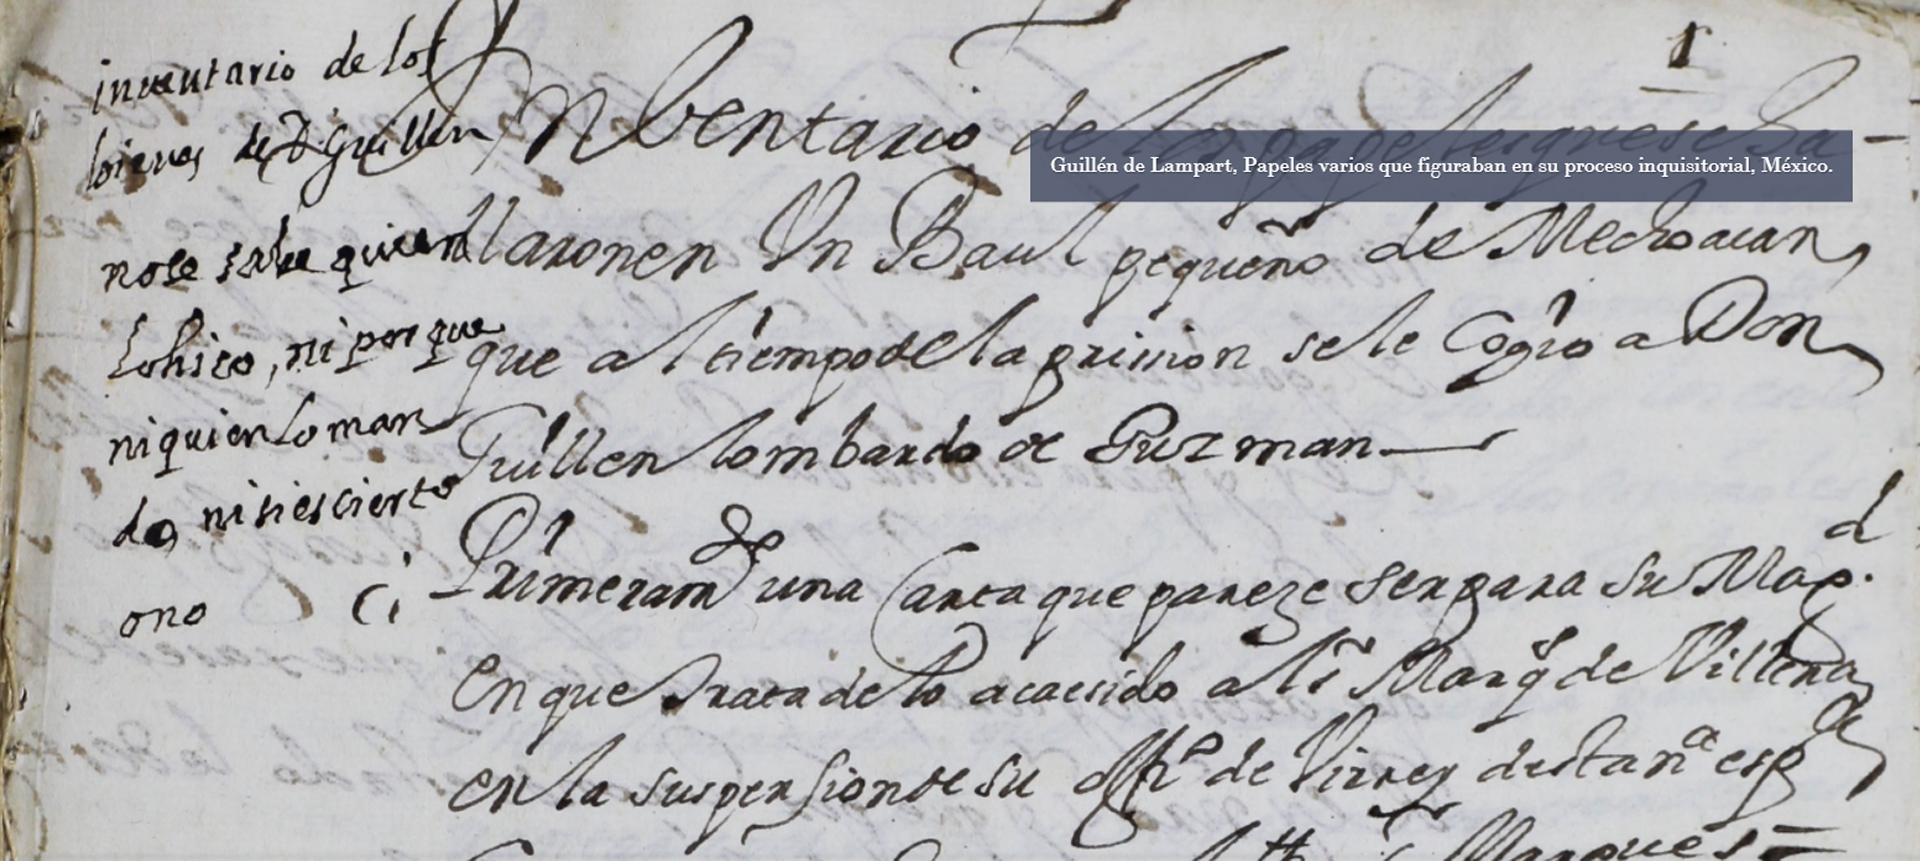 1
inventario de los
bienes de D Guillen
no se sabe quien
lo hiso, ni por que
ni quien lo man
do, ni si es cierto
o no
Ynbentario de los papeles que se ha-
llaron en Un Baul pequeño de Mechoacan,
que al tiempo de la prission se le Cogio a Don
Guillen lombardo de Guzman
Primeram^te una Carta que pareze ser para Su Mag^d.
En que trata delo acaesido al s^r Marq^s de Villena
en la suspension de su offi^o de Virrey desta n^a esp^a
Marques
Guillén de Lampart, Papeles varios que figuraban en su proceso inquisitorial, México.